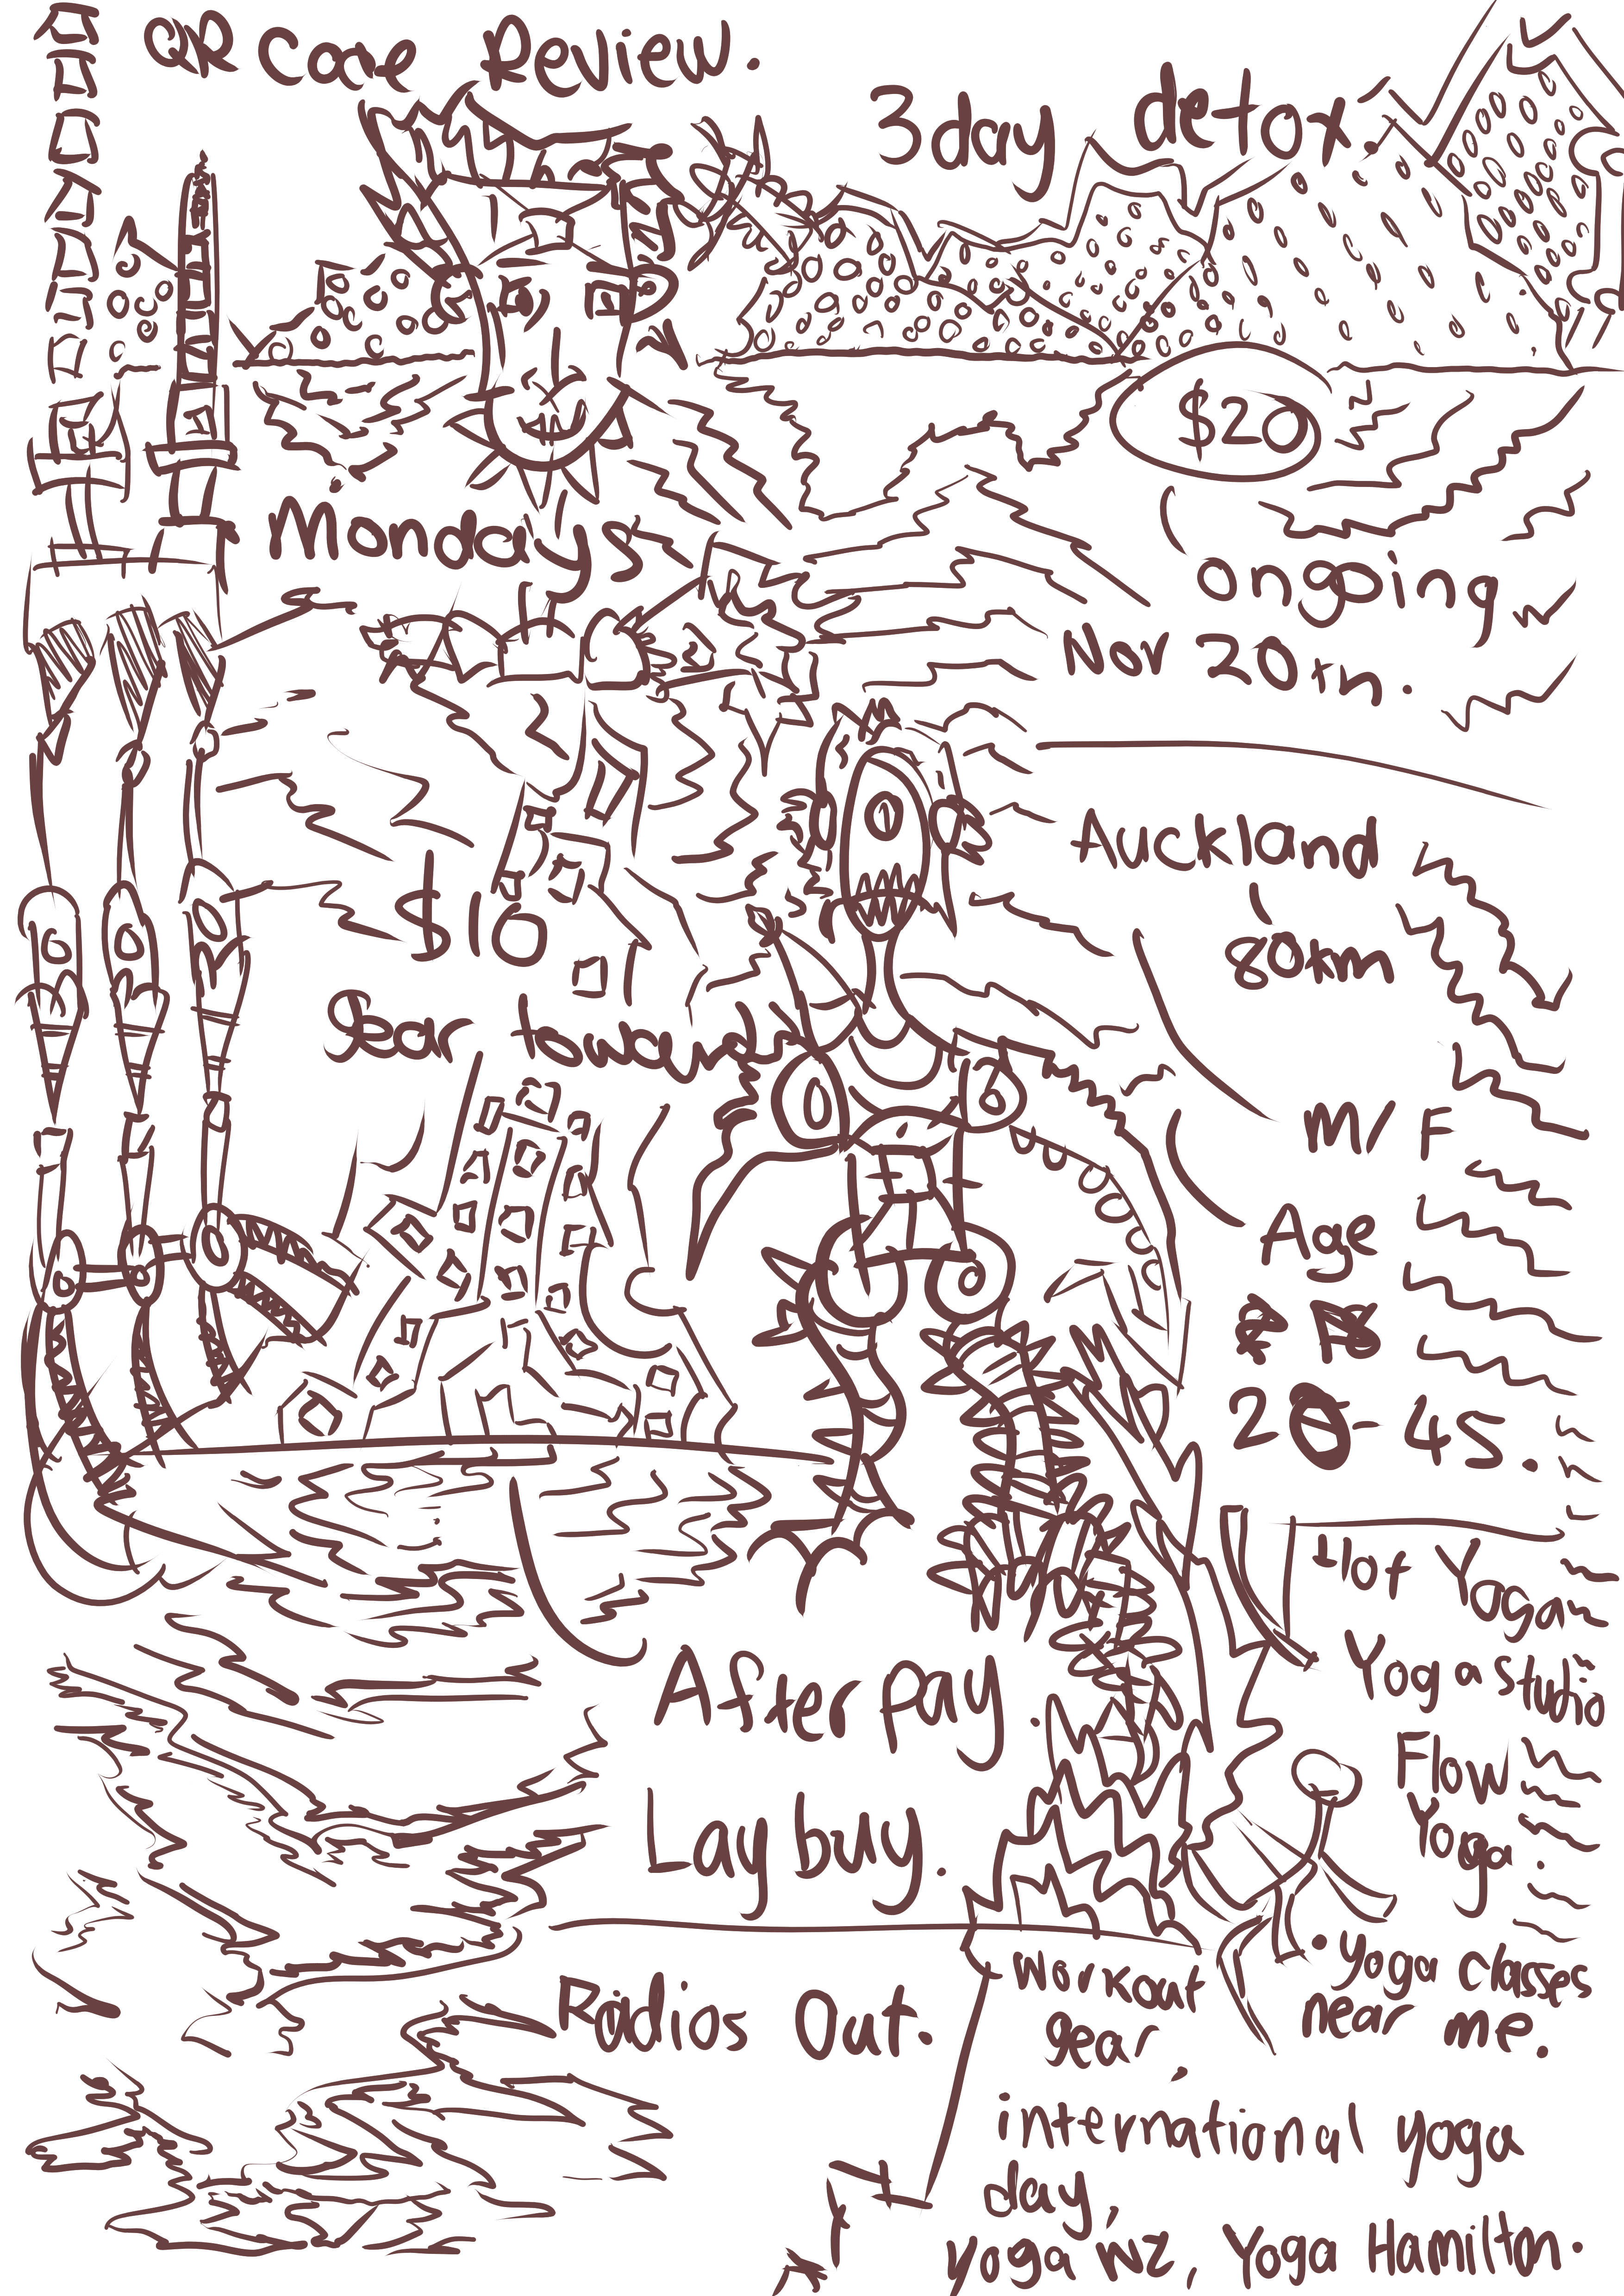 QR Code Review.
3 day detox.
$20
Mondays
ongoing
Nov 20th.
Auckland
80km
$10
gear towards
M/F
Age
20-45.
Hot Yoga
Yoga studio
Flow
Yoga.
After pay.
Lay buy.
Radios Out.
Workout
gear,
yoga classes
near me.
international yoga
day,
yoga NZ, Yoga Hamilton.